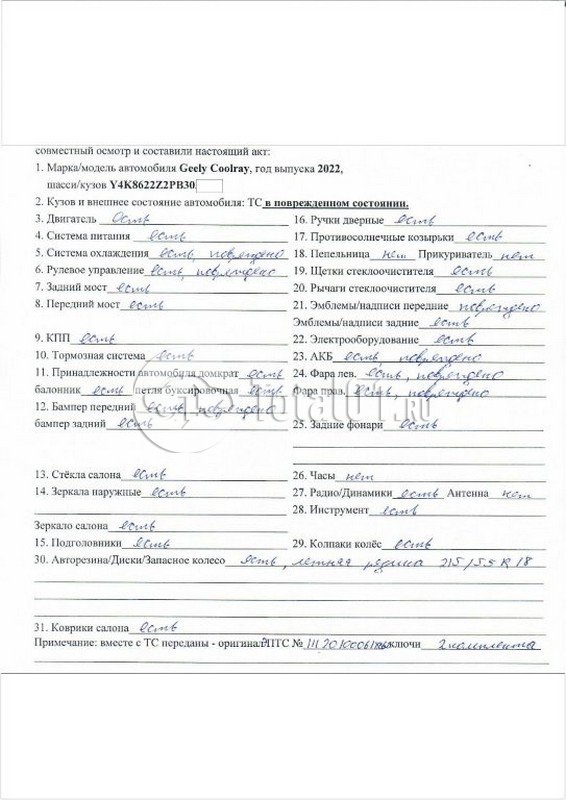 совместный осмотр и составили настоящий акт:
1. Марка/модель автомобиля Geely Coolray, год выпуска 2022,
шасси/кузов Y4K8622Z2PB30
2. Кузов и внешнее состояние автомобиля: ТС в поврежденном состоянии.
3. Двигатель есть
4. Система питания есть
5. Система охлаждения есть, повреждено
6. Рулевое управление есть, повреждено
7. Задний мост есть
8. Передний мост есть
9. КПП есть
10. Тормозная система есть
11. Принадлежности автомобиля домкрат есть
балонник есть петля буксировочная есть
12. Бампер передний есть, повреждено
бампер задний есть
13. Стёкла салона есть
14. Зеркала наружные есть
Зеркало салона есть
15. Подголовники есть
16. Ручки дверные есть
17. Противосолнечные козырьки есть
18. Пепельница нет Прикуриватель нет
19. Щетки стеклоочистителя есть
20. Рычаги стеклоочистителя есть
21. Эмблемы/надписи передние повреждено
Эмблемы/надписи задние есть
22. Электрооборудование есть
23. АКБ есть, повреждено
24. Фара лев. есть, повреждено
Фара прав. есть, повреждено
25. Задние фонари есть
26. Часы нет
27. Радио/Динамики есть Антенна нет
28. Инструмент есть
29. Колпаки колёс есть
30. Авторезина/Диски/Запасное колесо есть, летняя резина 215/55 R 18
31. Коврики салона есть
Примечание: вместе с ТС переданы - оригинал ПТС № ключи 2 комплекта
Total01.RU